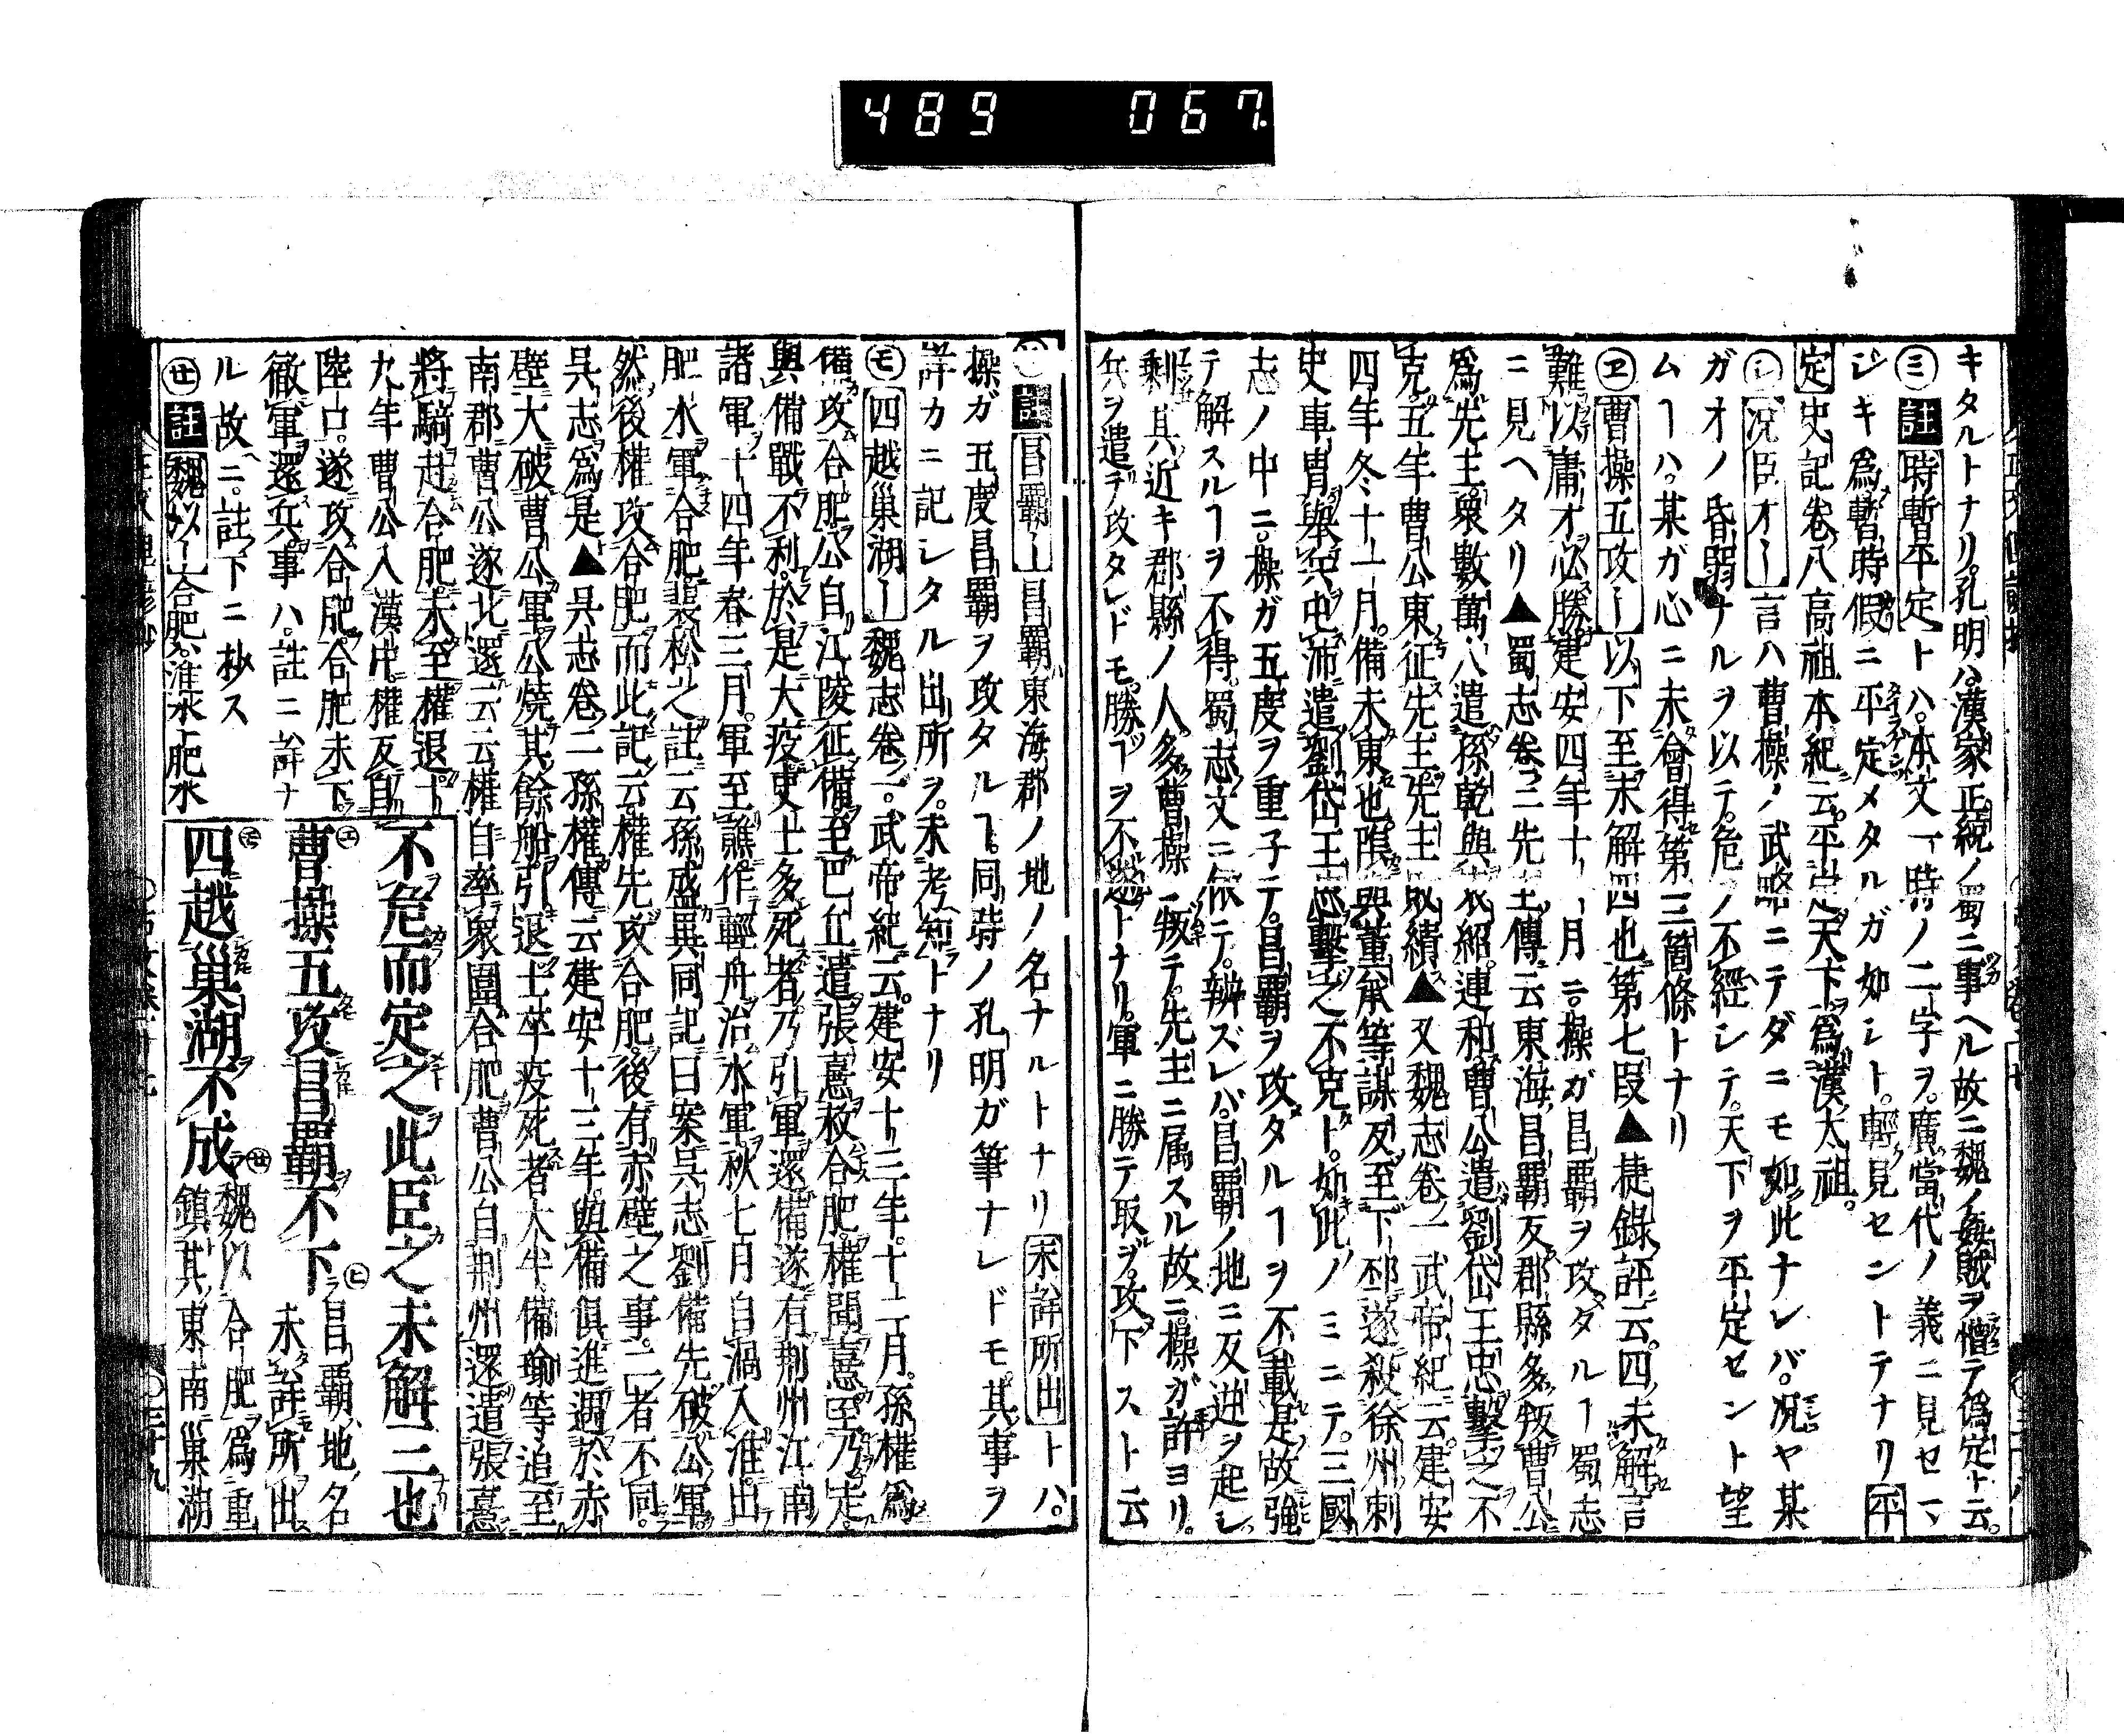 489 067.
キタルトナリ。孔明ハ漢家正統ノ蜀ニ事ヘル故ニ魏ノ姦賊ヲ憎テ偽定ト云。
㋯註時暫平定トハ。本文一時ノ二字ヲ。廣當代ノ義ニ見セマ
ジキ為。暫時假ニ平定メタルガ如シト。輕見セントテナリ平
定史記卷八高祖本紀云。平定天下。為漢太祖。
㋛况臣才｜言ハ曹操ノ武略ニテダニモ如此ナレバ。况ヤ某
ガオノ昏弱ナルヲ以テ。危ノ不經シテ。天下ヲ平定セント望
ムヿハ。某ガ心ニ未會得第三箇條トナリ
㋓曹操五攻｜以下至未解四也第七段▲捷錄評云。四未解言
難以庸才必勝建安四年十一月ニ。操ガ昌覇ヲ攻タルヿ蜀志
ニ見ヘタリ▲蜀志卷二先主傳云東海昌覇反郡縣多叛曹公
為先主衆數萬人遣孫乾與袁紹連和曹公遣劉岱王忠擊之不
克。五年曹公東征先主先主敗績▲又魏志卷一武帝紀云。建安
四年冬十二月。備未東也陰與董承等謀反至下邳遂殺徐州刺
史車冑舉兵屯沛遣劉岱王忠擊之不克ト。如此ノミニテ。三國
志ノ中ニ。操ガ五度ヲ重子テ。昌覇ヲ攻タルヿヲ不載是故強
テ解スルヿヲ不得。蜀志文ニ依テ。辨ズレバ。昌覇ノ地ニ反逆ヲ起シ。
剩其近キ郡縣ノ人多曹操ニ叛テ。先主ニ属スル故ニ。操ガ許ヨリ。
兵ヲ遣テ攻タレドモ。勝ヿヲ不遂トナリ。軍ニ勝テ取ヲ。攻下スト云
註昌覇｜昌覇東海郡ノ地ノ名ナルトナリ未詳所出トハ。
操ガ五度昌覇ヲ攻タルヿ。同時ノ孔明ガ筆ナレドモ。其事ヲ
詳カニ記シタル出所ヲ。未考知トナリ
㋲四越巢湖｜魏志卷一。武帝紀云。建安十三年。十二月。孫權為
備攻合肥。公自江陵征備至巴丘遣張憙救合肥。權聞憙至乃走。
與備戰不利。於是大疫吏士多死者。乃引軍還備遂有荊州江南
諸軍。十四年春三月。軍至譙。作輕舟治水軍秋七月自渦入淮。出
肥水軍合肥。裴松之註云孫盛異同記曰案吳志劉備先破公軍。
然後權攻合肥而此記云權先攻合肥。後有赤壁之事。二者不同。
吳志為是▲吳志卷二孫權傳云建安十三年。與備俱進遇於赤
壁大破曹公軍。公燒其餘船引退士卒疫死者大半備瑜等追至
南郡曹公遂北還云云權自率衆圍合肥曹公自荊州還遣張憙
將騎赴合肥。未至權退。十
九年曹公入漢中。權反自
陸口。遂攻合肥。合肥未下
徹軍還兵。事ハ。註ニ詳ナ
ル故ニ。註下ニ抄ス
㊉註魏以｜合肥淮水肥水
不危而定之此臣之未解三也
曹操五攻昌覇不下昌覇地名未詳所出
四越巢湖不成魏以合肥為重鎮其東南巢湖